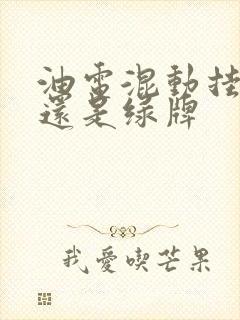 油電混動挂
還是綠牌
我愛喫芒果